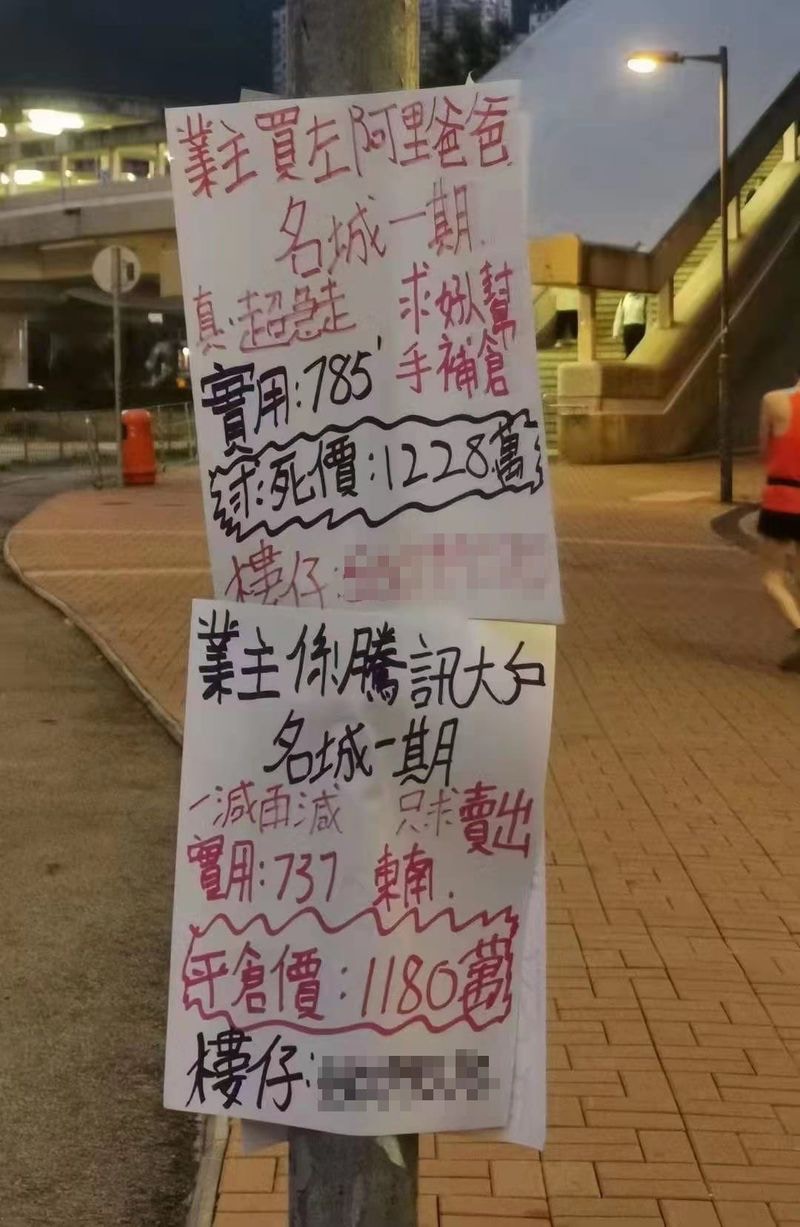 業主買左阿里爸爸
名城一期
真·超急走
求好人幫
手補倉
實用:785'
求死價:1228萬
樓仔:
業主係騰訊大戶
名城一期
一減再減 只求賣出
實用:737 東南.
平倉價:1180萬
樓仔: